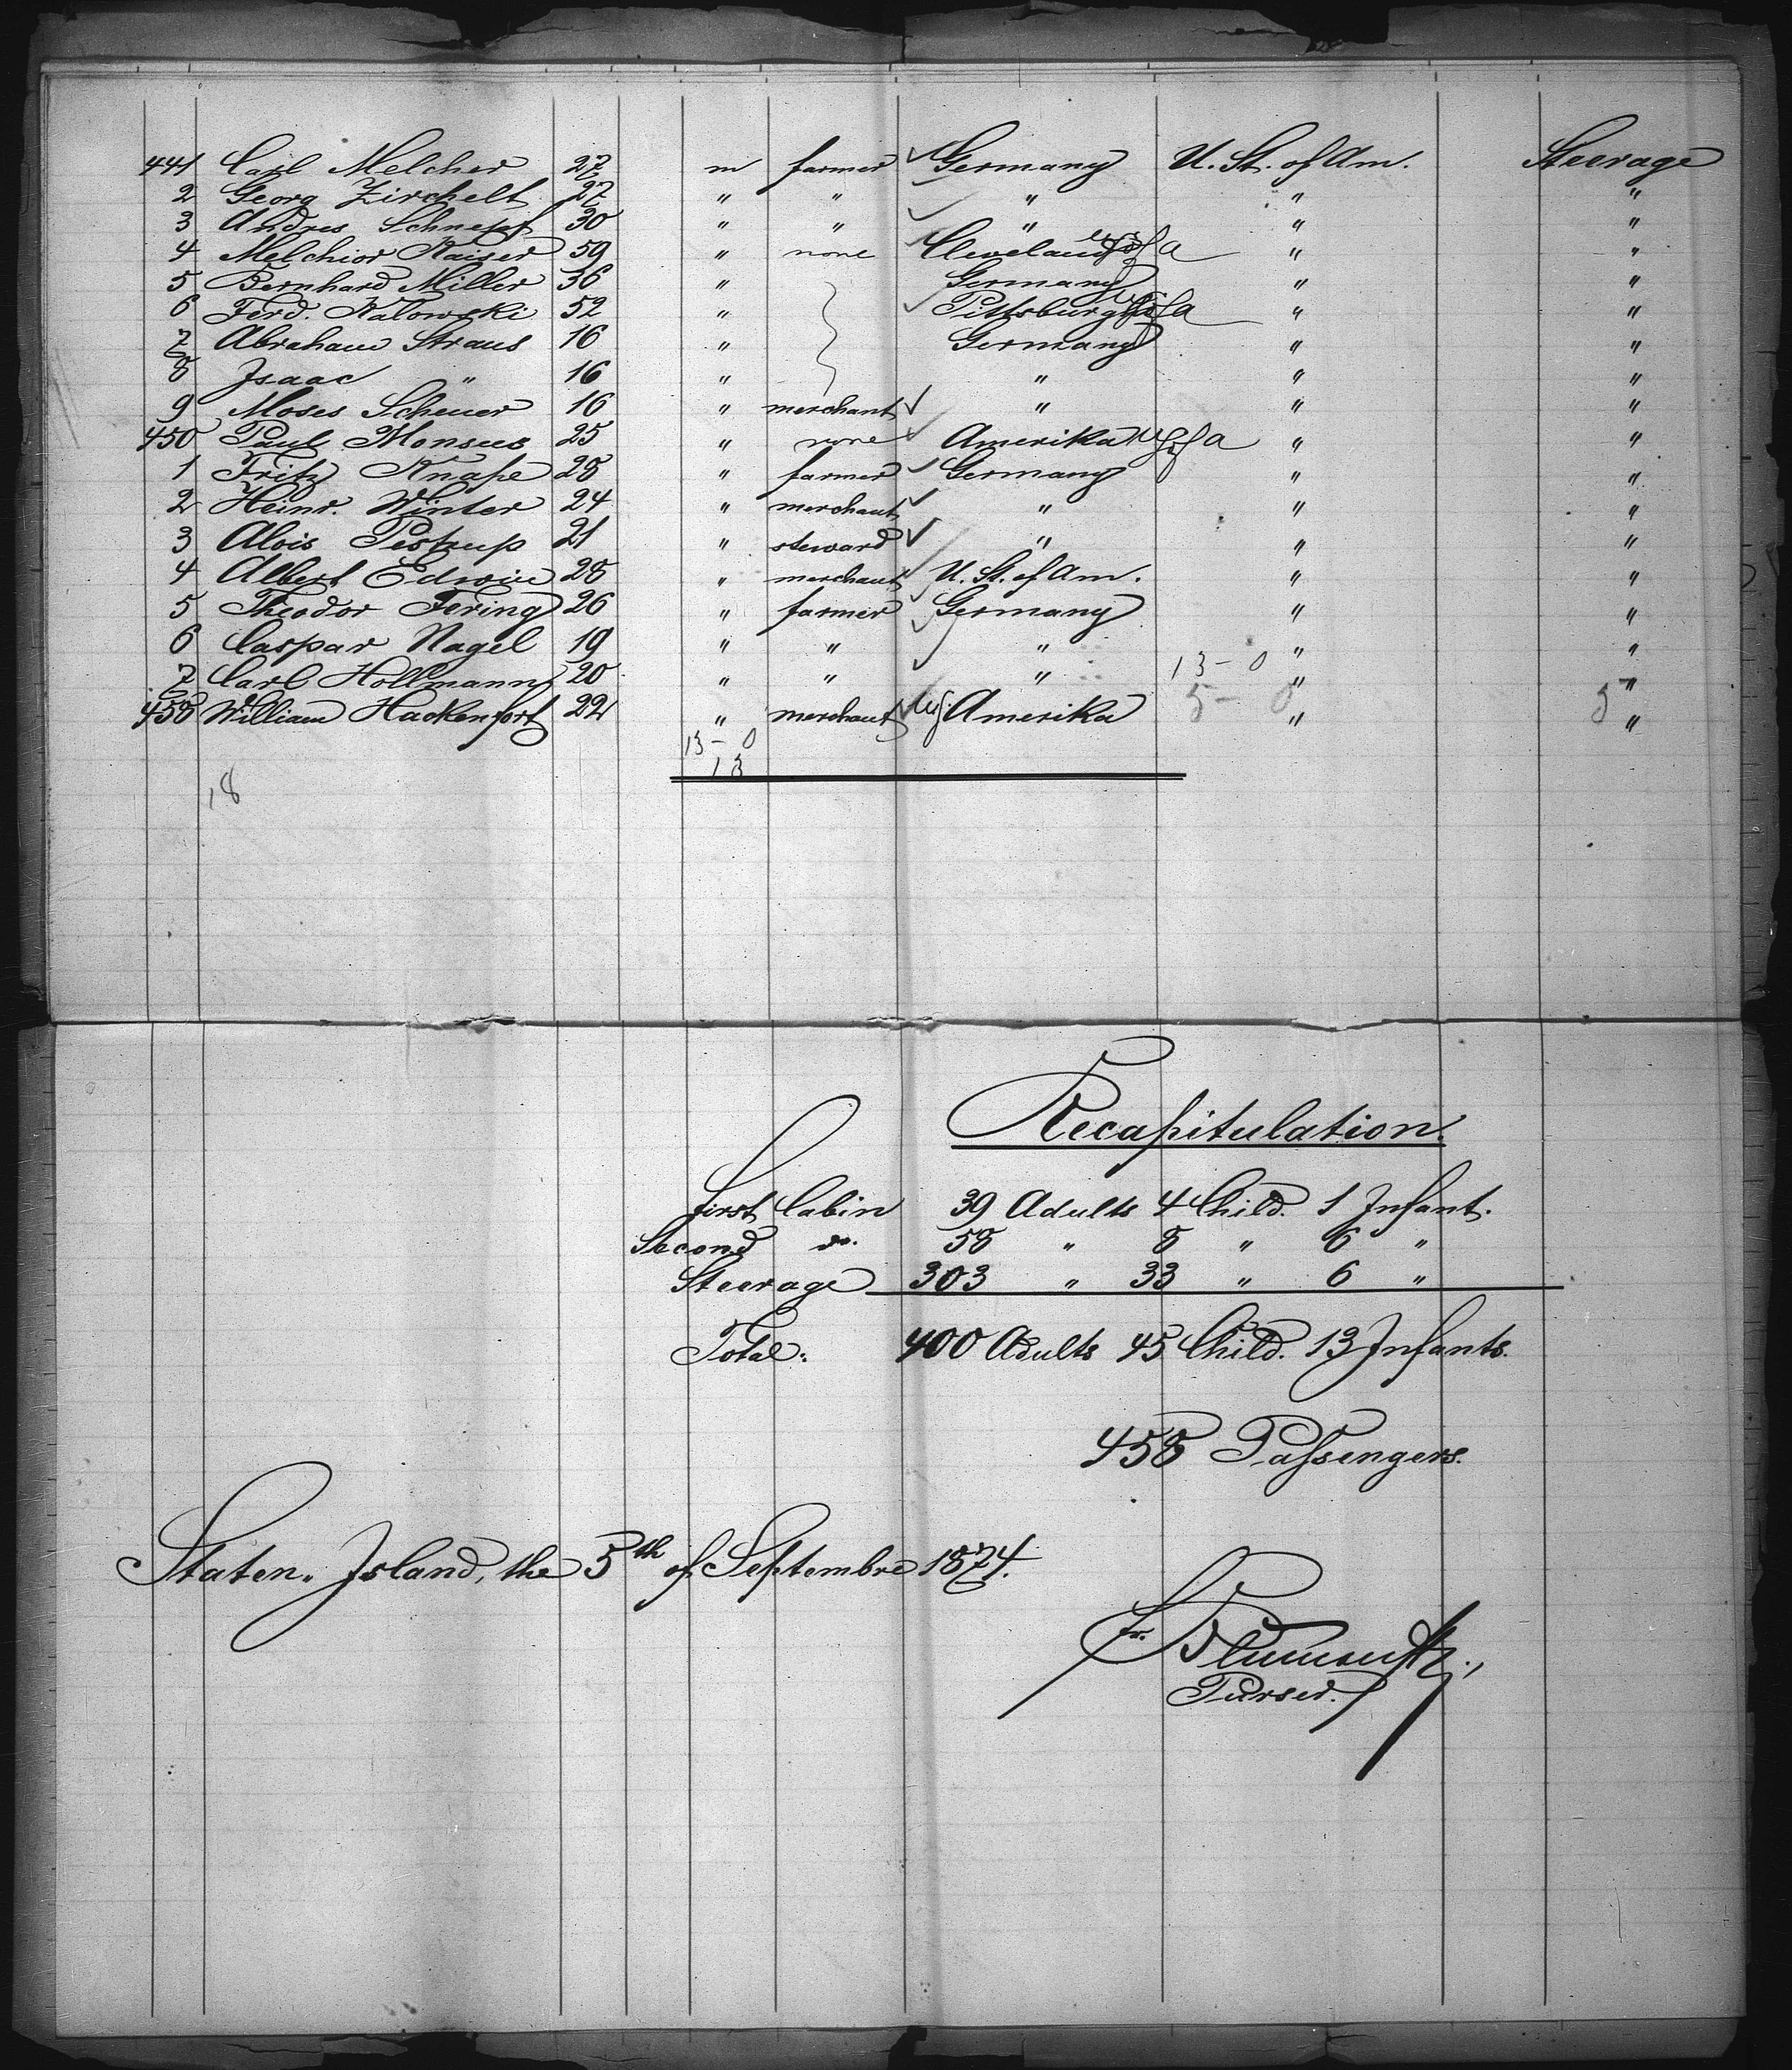 441 Carl Melcher 27 m farmer Germany U. St. of Am. Steerage
2 Georg Zirchelt 27 " " " " "
3 Andres Schnepf 30 " " " " "
4 Melchior Kaiser 59 " none Cleveland US of a " "
5 Bernhard Miller 36 " Germany " "
6 Ferd. Kalowski 52 " Pittsburg US of a " "
7 Abraham Straus 16 " Germany " "
8 Isaac " 16 " " " "
9 Moses Scheuer 16 " merchant " " "
450 Paul Monsees 25 " none Amerika US of a " "
1 Fritz Knape 28 " farmer Germany " "
2 Heinr. Winter 24 " merchant " " "
3 Alois 21 " steward " " "
4 Albert Edwin 28 " merchant U. St. of Am. " "
5 Theodor Fering 26 " farmer Germany " "
6 Caspar Nagel 19 " " " " "
7 Carl Hollmann 20 " " " 13-0 " "
458 William Hackenfort 22 " merchant US Amerika 5-0 " 5 "
13-0
13
18
Recapitulation.
First Cabin 39 Adults 4 Child. 1 Infant.
Second do. 58 " 8 " 6 "
Steerage 303 " 33 " 6 "
Total: 400 Adults 45 Child. 13 Infants.
458 Passengers.
Staten-Island, the 5th of Septembre 1874.
Purser.